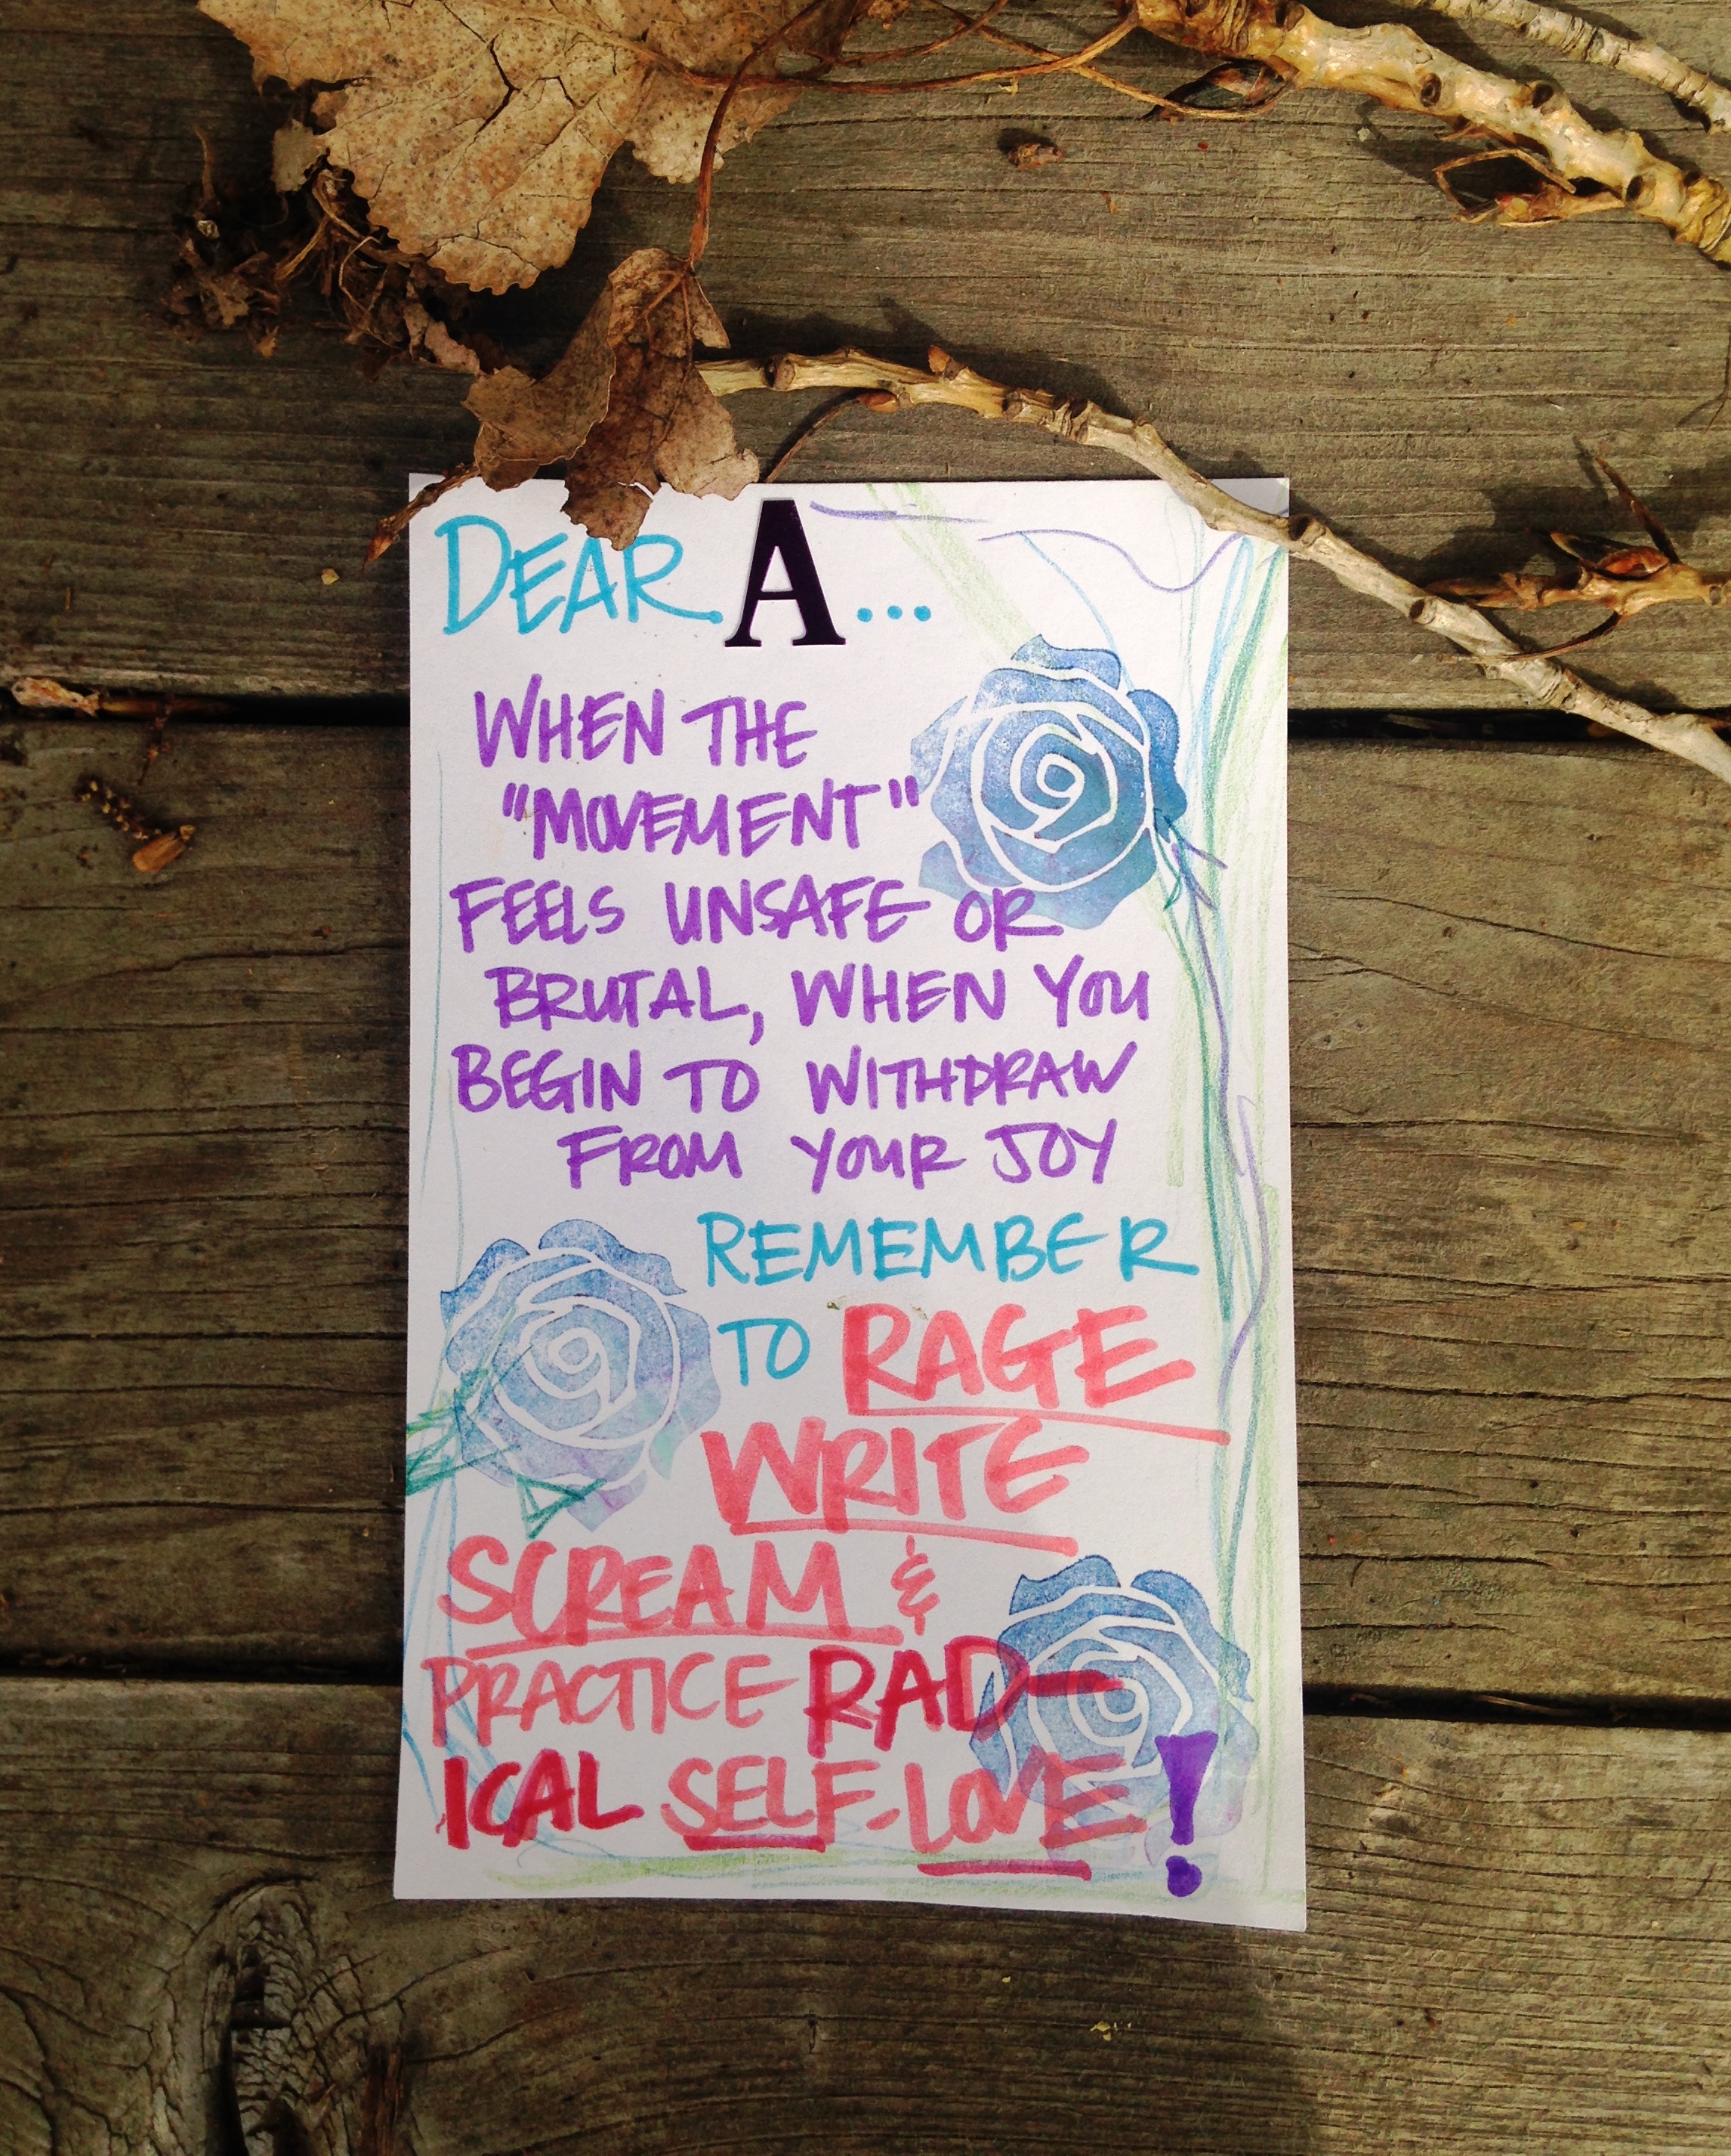 DEAR A...
WHEN THE
"MOVEMENT"
FEELS UNSAFE OR
BRUTAL, WHEN YOU
BEGIN TO WITHDRAW
FROM YOUR JOY
REMEMBER
TO RAGE
WRITE
SCREAM &
PRACTICE RAD-
ICAL SELF-LOVE!